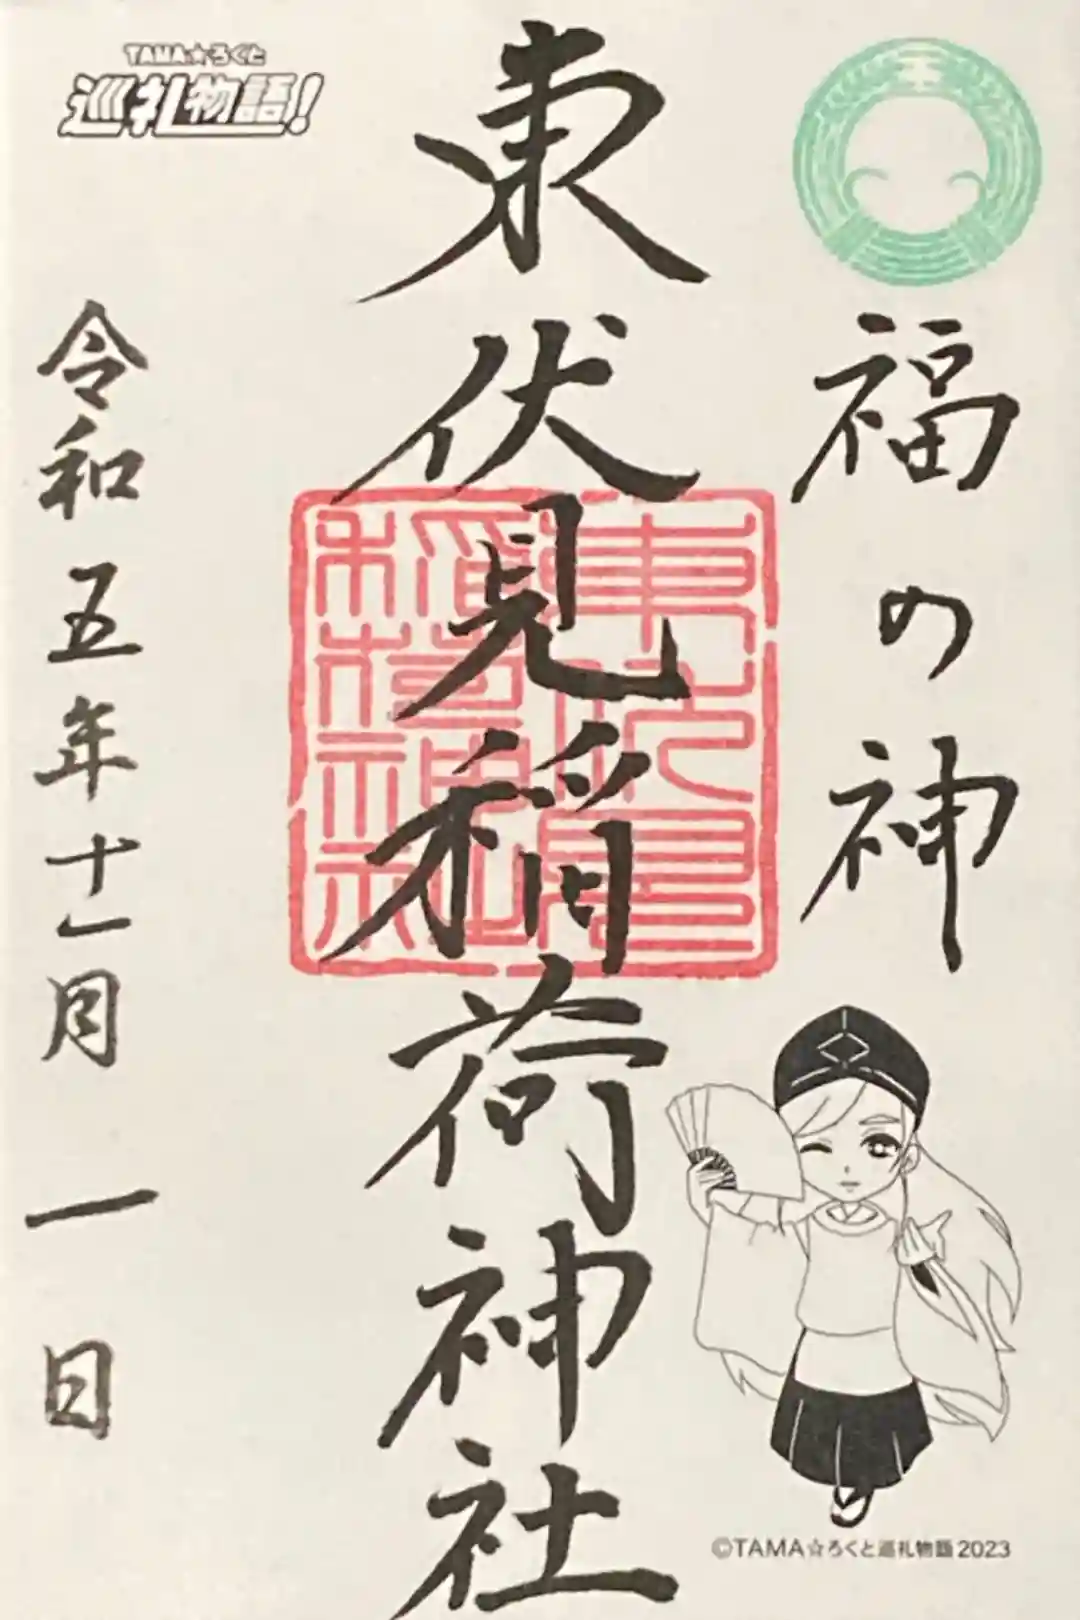 TAMA☆ろくと
巡礼物語!
福の神
東伏見稲荷神社
令和五年十一月一日
©TAMA☆ろくと巡礼物語 2023